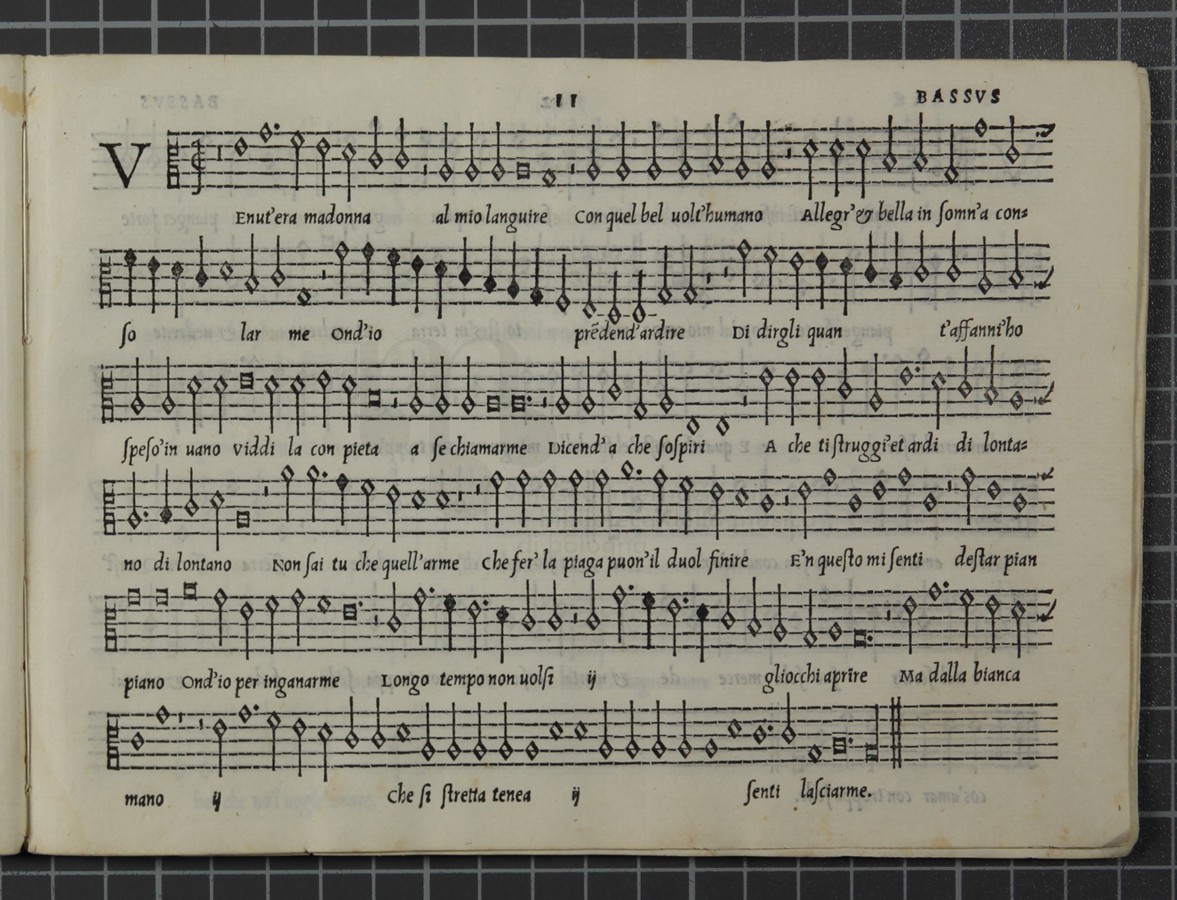 11 BASSVS
VEnut'era madonna al mio languire Con quel bel uolt'humano Allegr'& bella in ſomn'a con=
ſo lar me Ond'io prẽdend'ardire Di dirgli quan t'affanni'ho
ſpeſo'in uano viddi la con pieta a ſe chiamarme Dicend'a che ſoſpiri A che ti ſtruggi'et ardi di lonta=
no di lontano Non ſai tu che quell'arme Che fer' la piaga puon'il duol finire E'n queſto mi ſenti deſtar pian
piano Ond'io per inganarme Longo tempo non uolſi ij gliocchi aprire Ma dalla bianca
mano ij Che ſi ſtretta tenea ij ſenti laſciarme.